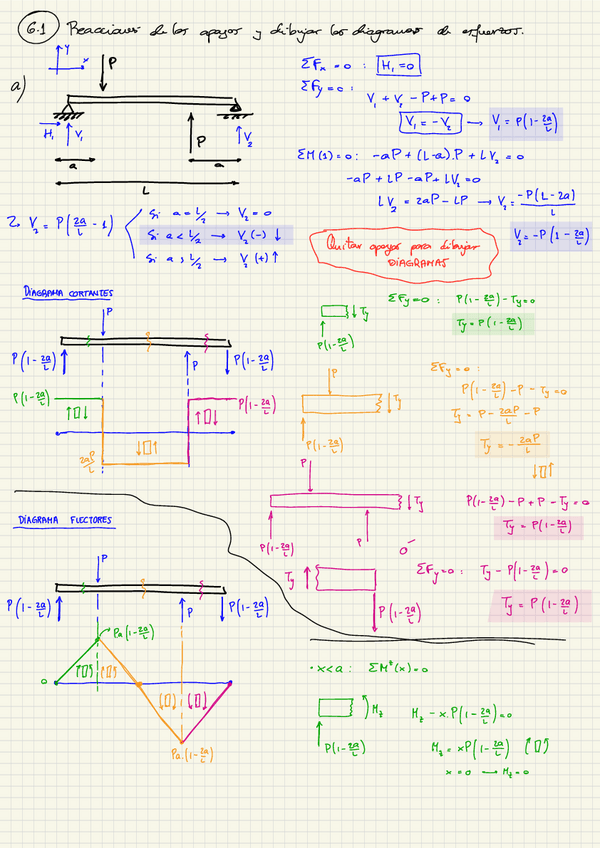 6.1 Reacciones de los apoyos y dibujar los diagramas de esfuerzos.
a)
Y
x
P
H₁ V₁
P
V₂
a
a
L
ΣFx = 0 : H₁ = 0
ΣFy = 0 :
V₁ + V₂ - P + P = 0
V₁ = -V₂ → V₁ = P(1 - 2a/L)
ΣM(1) = 0 : -aP + (L-a).P + LV₂ = 0
-aP + LP - aP + LV₂ = 0
LV₂ = 2aP - LP → V₂ = -P(L-2a)/L
V₂ = -P(1 - 2a/L)
V₂ = P(2a/L - 1)
Si a = L/2 → V₂ = 0
Si a < L/2 → V₂ (-) ↓
Si a > L/2 → V₂ (+) ↑
Quitar apoyos para dibujar
DIAGRAMAS
DIAGRAMA CORTANTES
P
P(1 - 2a/L)
P
P(1 - 2a/L)
P(1 - 2a/L)
P(1 - 2a/L)
2aP/L
Ty
P(1 - 2a/L)
ΣFy = 0 : P(1 - 2a/L) - Ty = 0
Ty = P(1 - 2a/L)
P
Ty
P(1 - 2a/L)
ΣFy = 0 :
P(1 - 2a/L) - P - Ty = 0
Ty = P - 2aP/L - P
Ty = - 2aP/L
P
Ty
P(1 - 2a/L)
P
P(1 - 2a/L) - P + P - Ty = 0
Ty = P(1 - 2a/L)
o
Ty
P(1 - 2a/L)
ΣFy = 0 : Ty - P(1 - 2a/L) = 0
Ty = P(1 - 2a/L)
DIAGRAMA FLECTORES
P
P(1 - 2a/L)
P
P(1 - 2a/L)
Pa(1 - 2a/L)
0
Pa.(1 - 2a/L)
· x < a : ΣM(x) = 0
Mz
P(1 - 2a/L)
Mz - x.P(1 - 2a/L) = 0
Mz = xP(1 - 2a/L)
x = 0 → Mz = 0